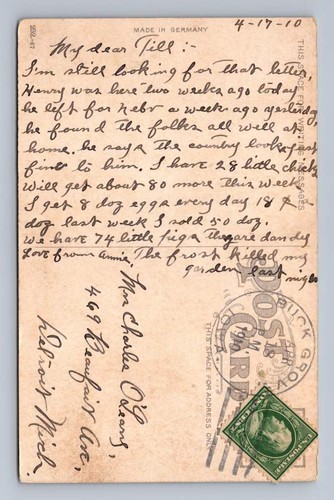 MADE IN GERMANY
4-17-10
My dear Till:-
I'm still looking for that letter,
Henry was here two weeks ago today
he left for Nebr a week ago yesterday
he found the folks all well at
home. he says the country looks just
fine to him. I have 28 little chicks
Will get about 80 more this week
I get 8 doz eggs every day 18 ¢ a
doz last week I sold 50 doz.
We have 74 little pigs they are dandy
Love from Annie The frost killed my
garden last night
THIS SPACE FOR WRITING MESSAGES
POST
CARD
THIS SPACE FOR ADDRESS ONLY
BUCK GROVE
APR
18
1910
Mrs Charles O'Leary,
469 Beaufait Ave,
Detroit Mich.